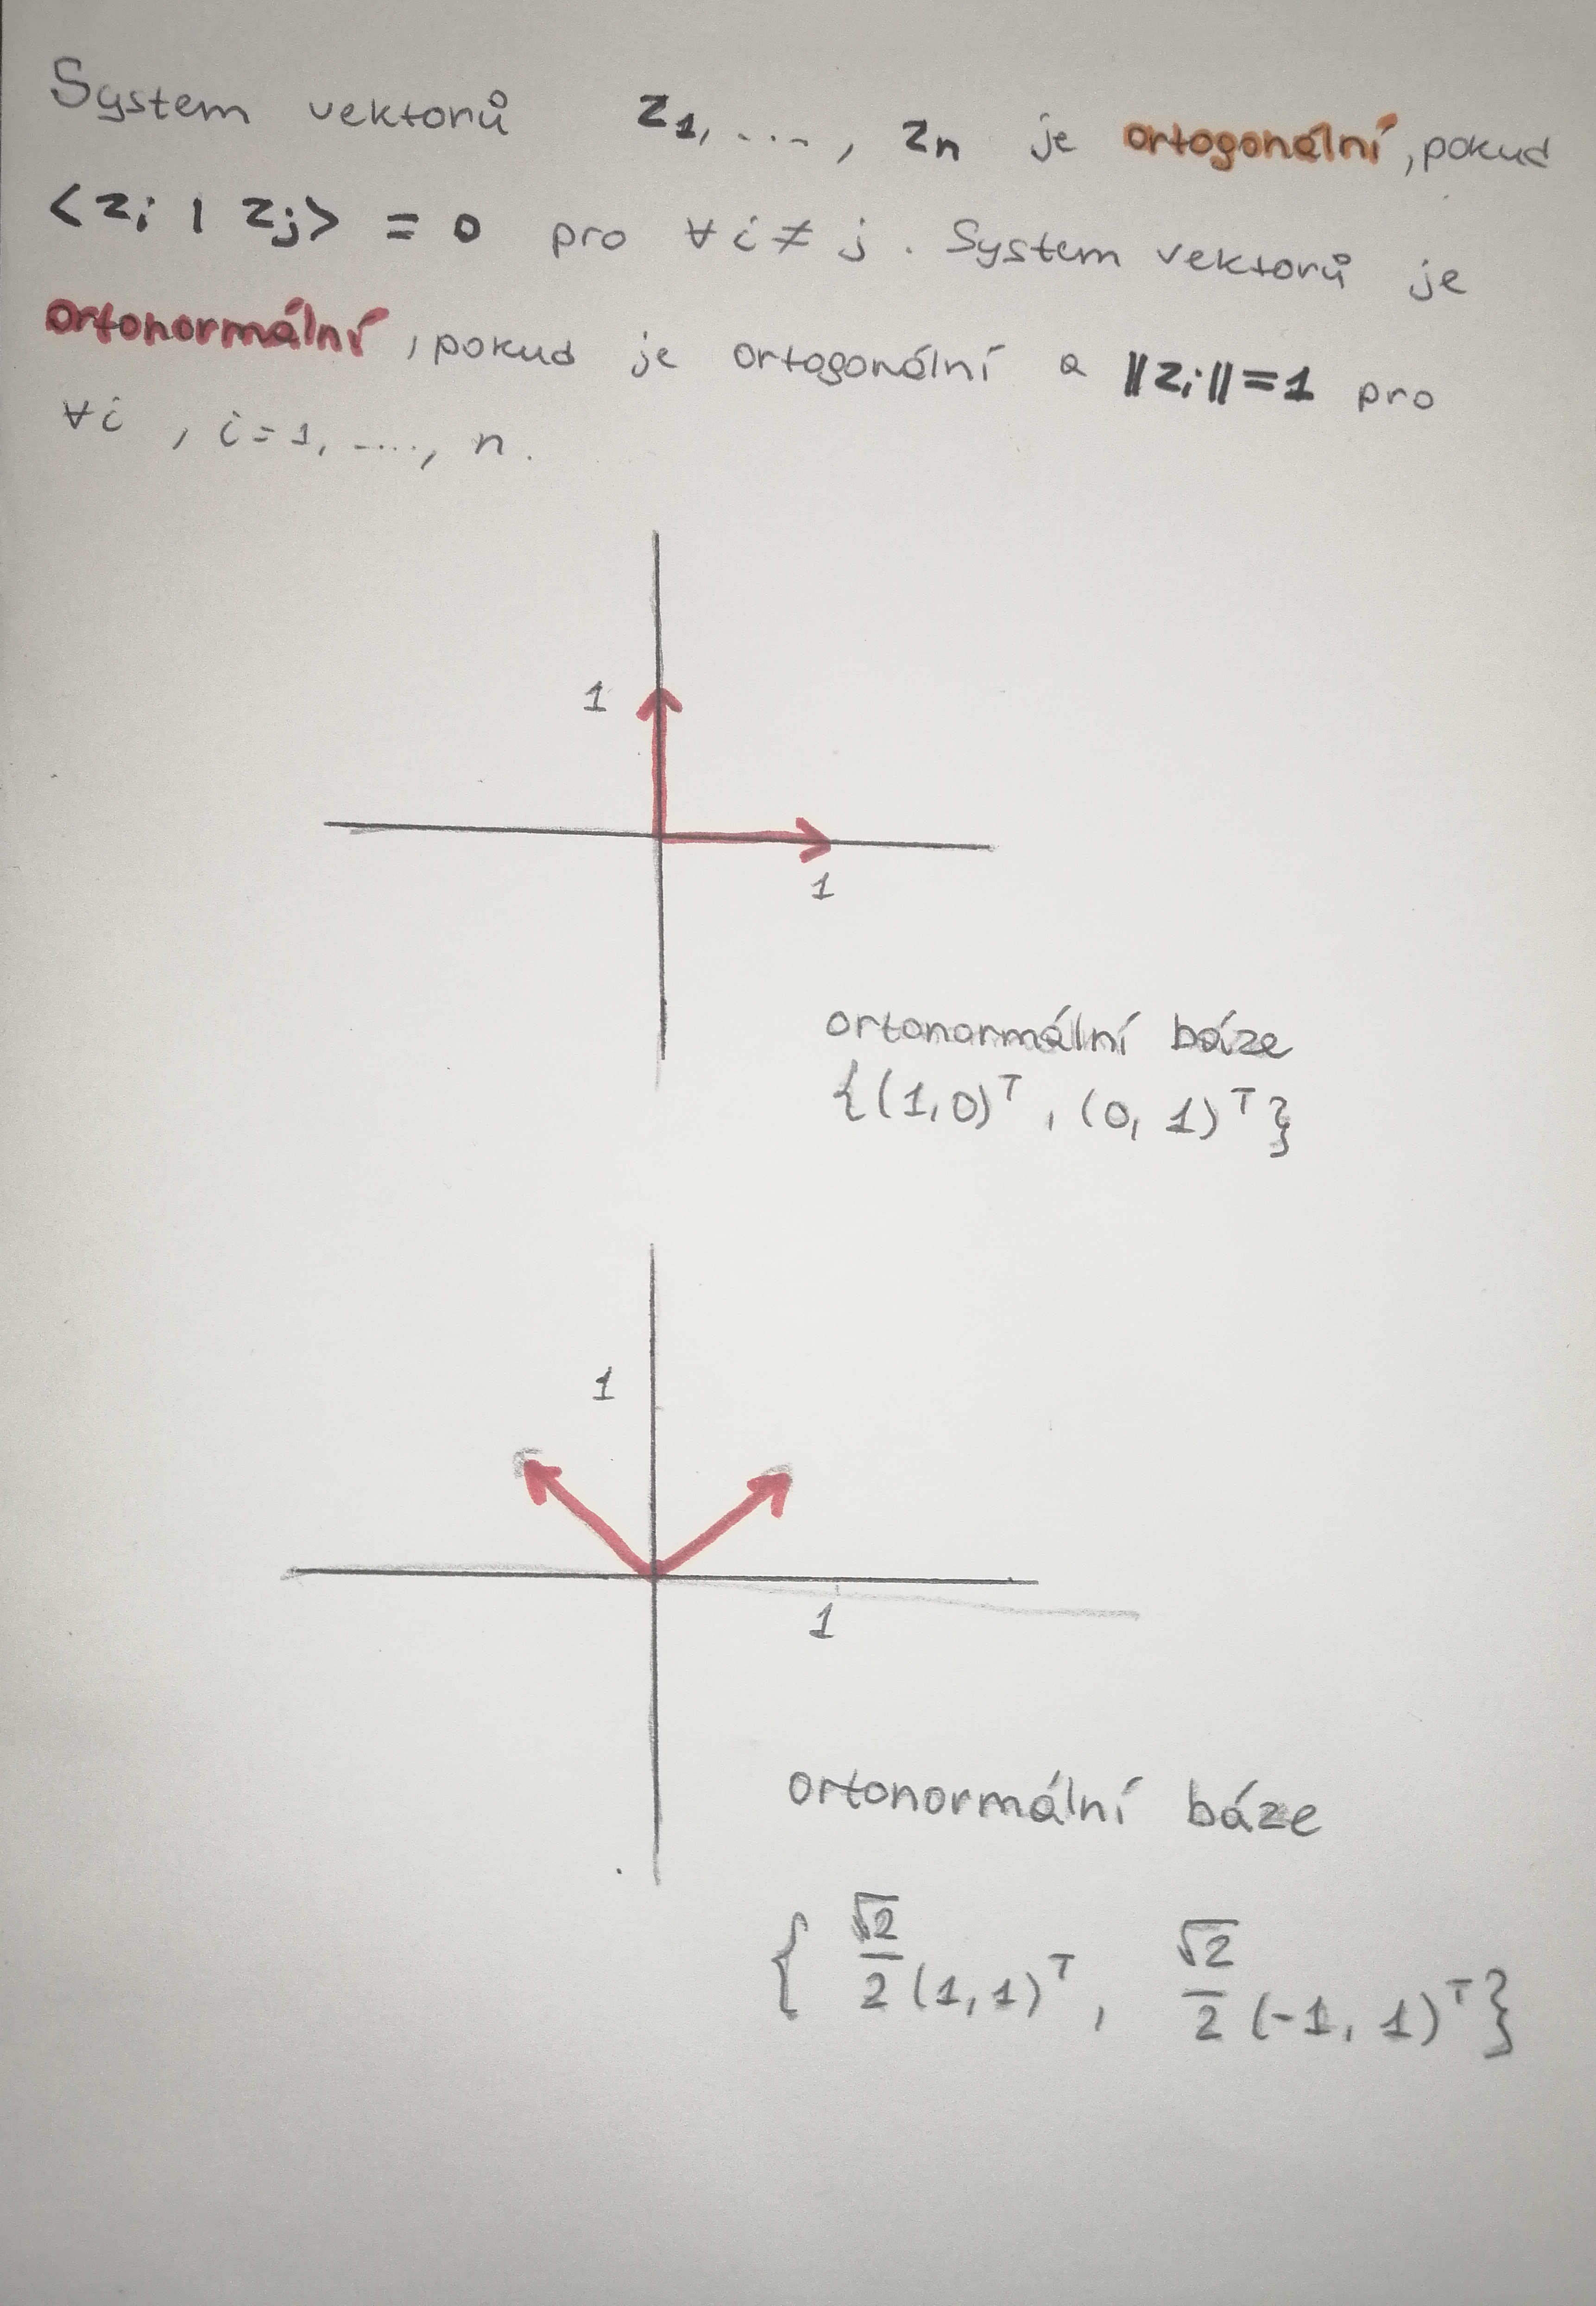 System vektorů z₁, ...., zₙ je ortogonální, pokud
<zᵢ | zⱼ> = 0 pro ∀ i ≠ j. System vektorů je
ortonormální, pokud je ortogonální a ‖zᵢ‖=1 pro
∀i, i=1, ...., n.
1
1
ortonormální báze
{(1,0)ᵀ, (0,1)ᵀ}
1
1
ortonormální báze
{ √2/2 (1,1)ᵀ, √2/2 (-1,1)ᵀ}